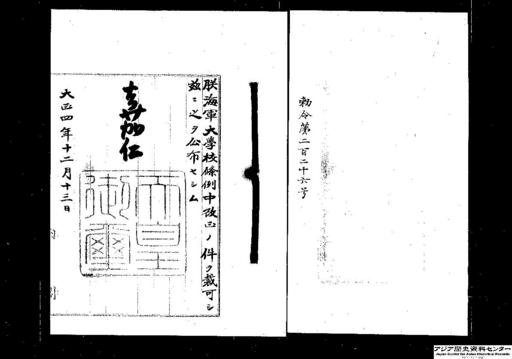 勅令第二百二十六号
朕海軍大學校條例中改正ノ件ヲ裁可シ
玆ニ之ヲ公布セシム
嘉仁
天皇
御璽
大正四年十二月十三日
内
アジア歴史資料センター
Japan Center for Asian Historical Records